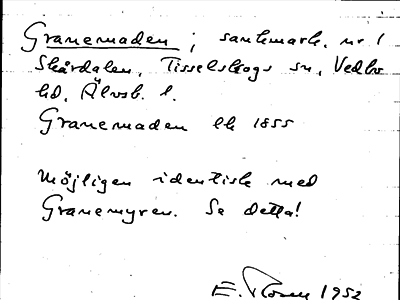 Granemaden ; sankmark. nr 1
Skårdalen, Tisselskogs sn, Vedbo
hd, Älvsb. l.
Granemaden Ek 1855
Möjligen identisk med
Granemyren. Se detta!
E. 1952